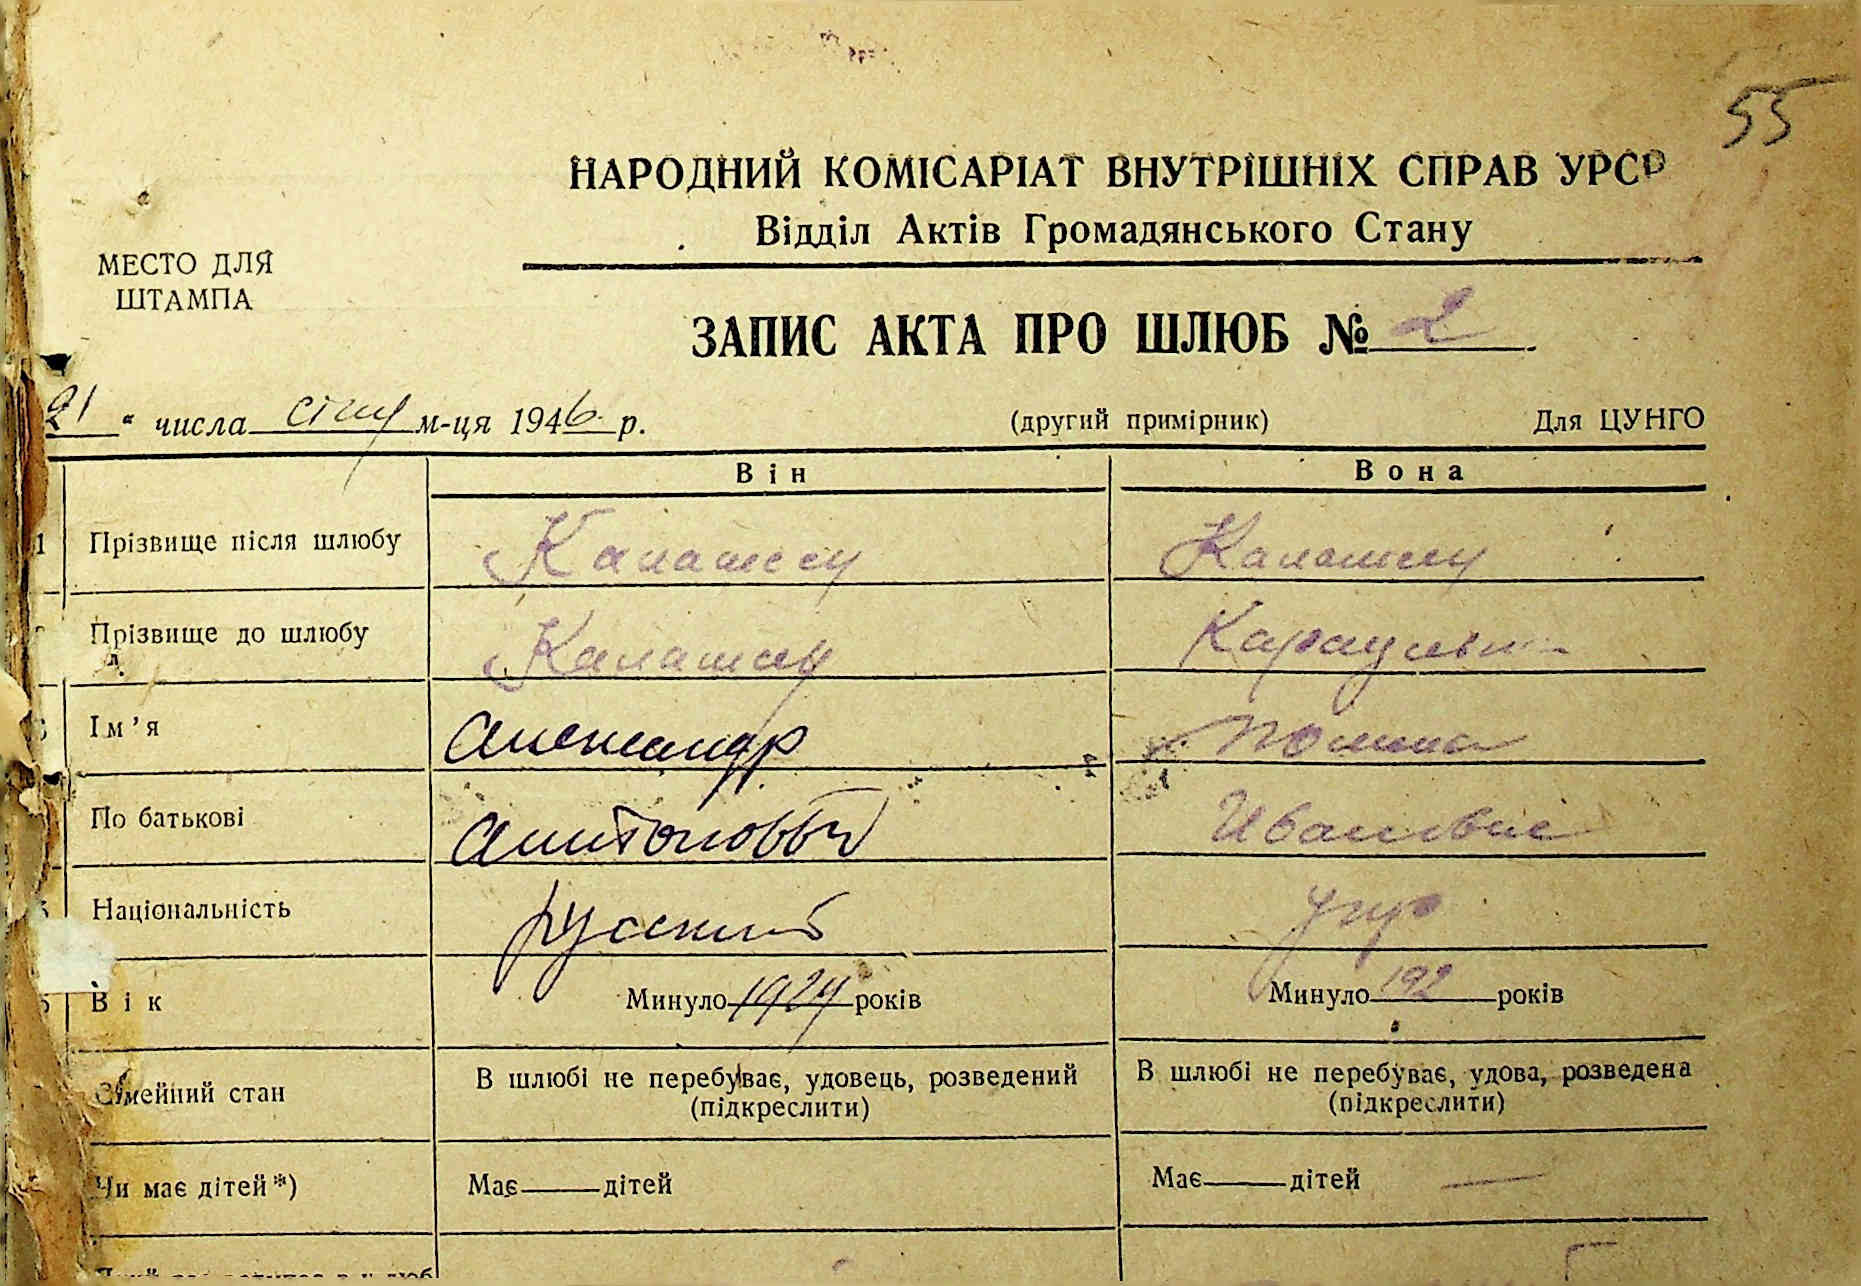 55
НАРОДНИЙ КОМІСАРІАТ ВНУТРІШНІХ СПРАВ УРСР
Відділ Актів Громадянського Стану
МЕСТО ДЛЯ
ШТАМПА
ЗАПИС АКТА ПРО ШЛЮБ № 2
21 " числа січня м-ця 1946 р. (другий примірник) Для ЦУНГО
Він Вона
1 Прізвище після шлюбу
Прізвище до шлюбу
Ім'я Александр Полина
По батькові Антонович Ивановне
Національність русский укр
Вік Минуло 1924 років Минуло 192 років
Сімейний стан В шлюбі не перебуває, удовець, розведений (підкреслити) В шлюбі не перебуває, удова, розведена (підкреслити)
Чи має дітей*) Має — дітей Має — дітей —